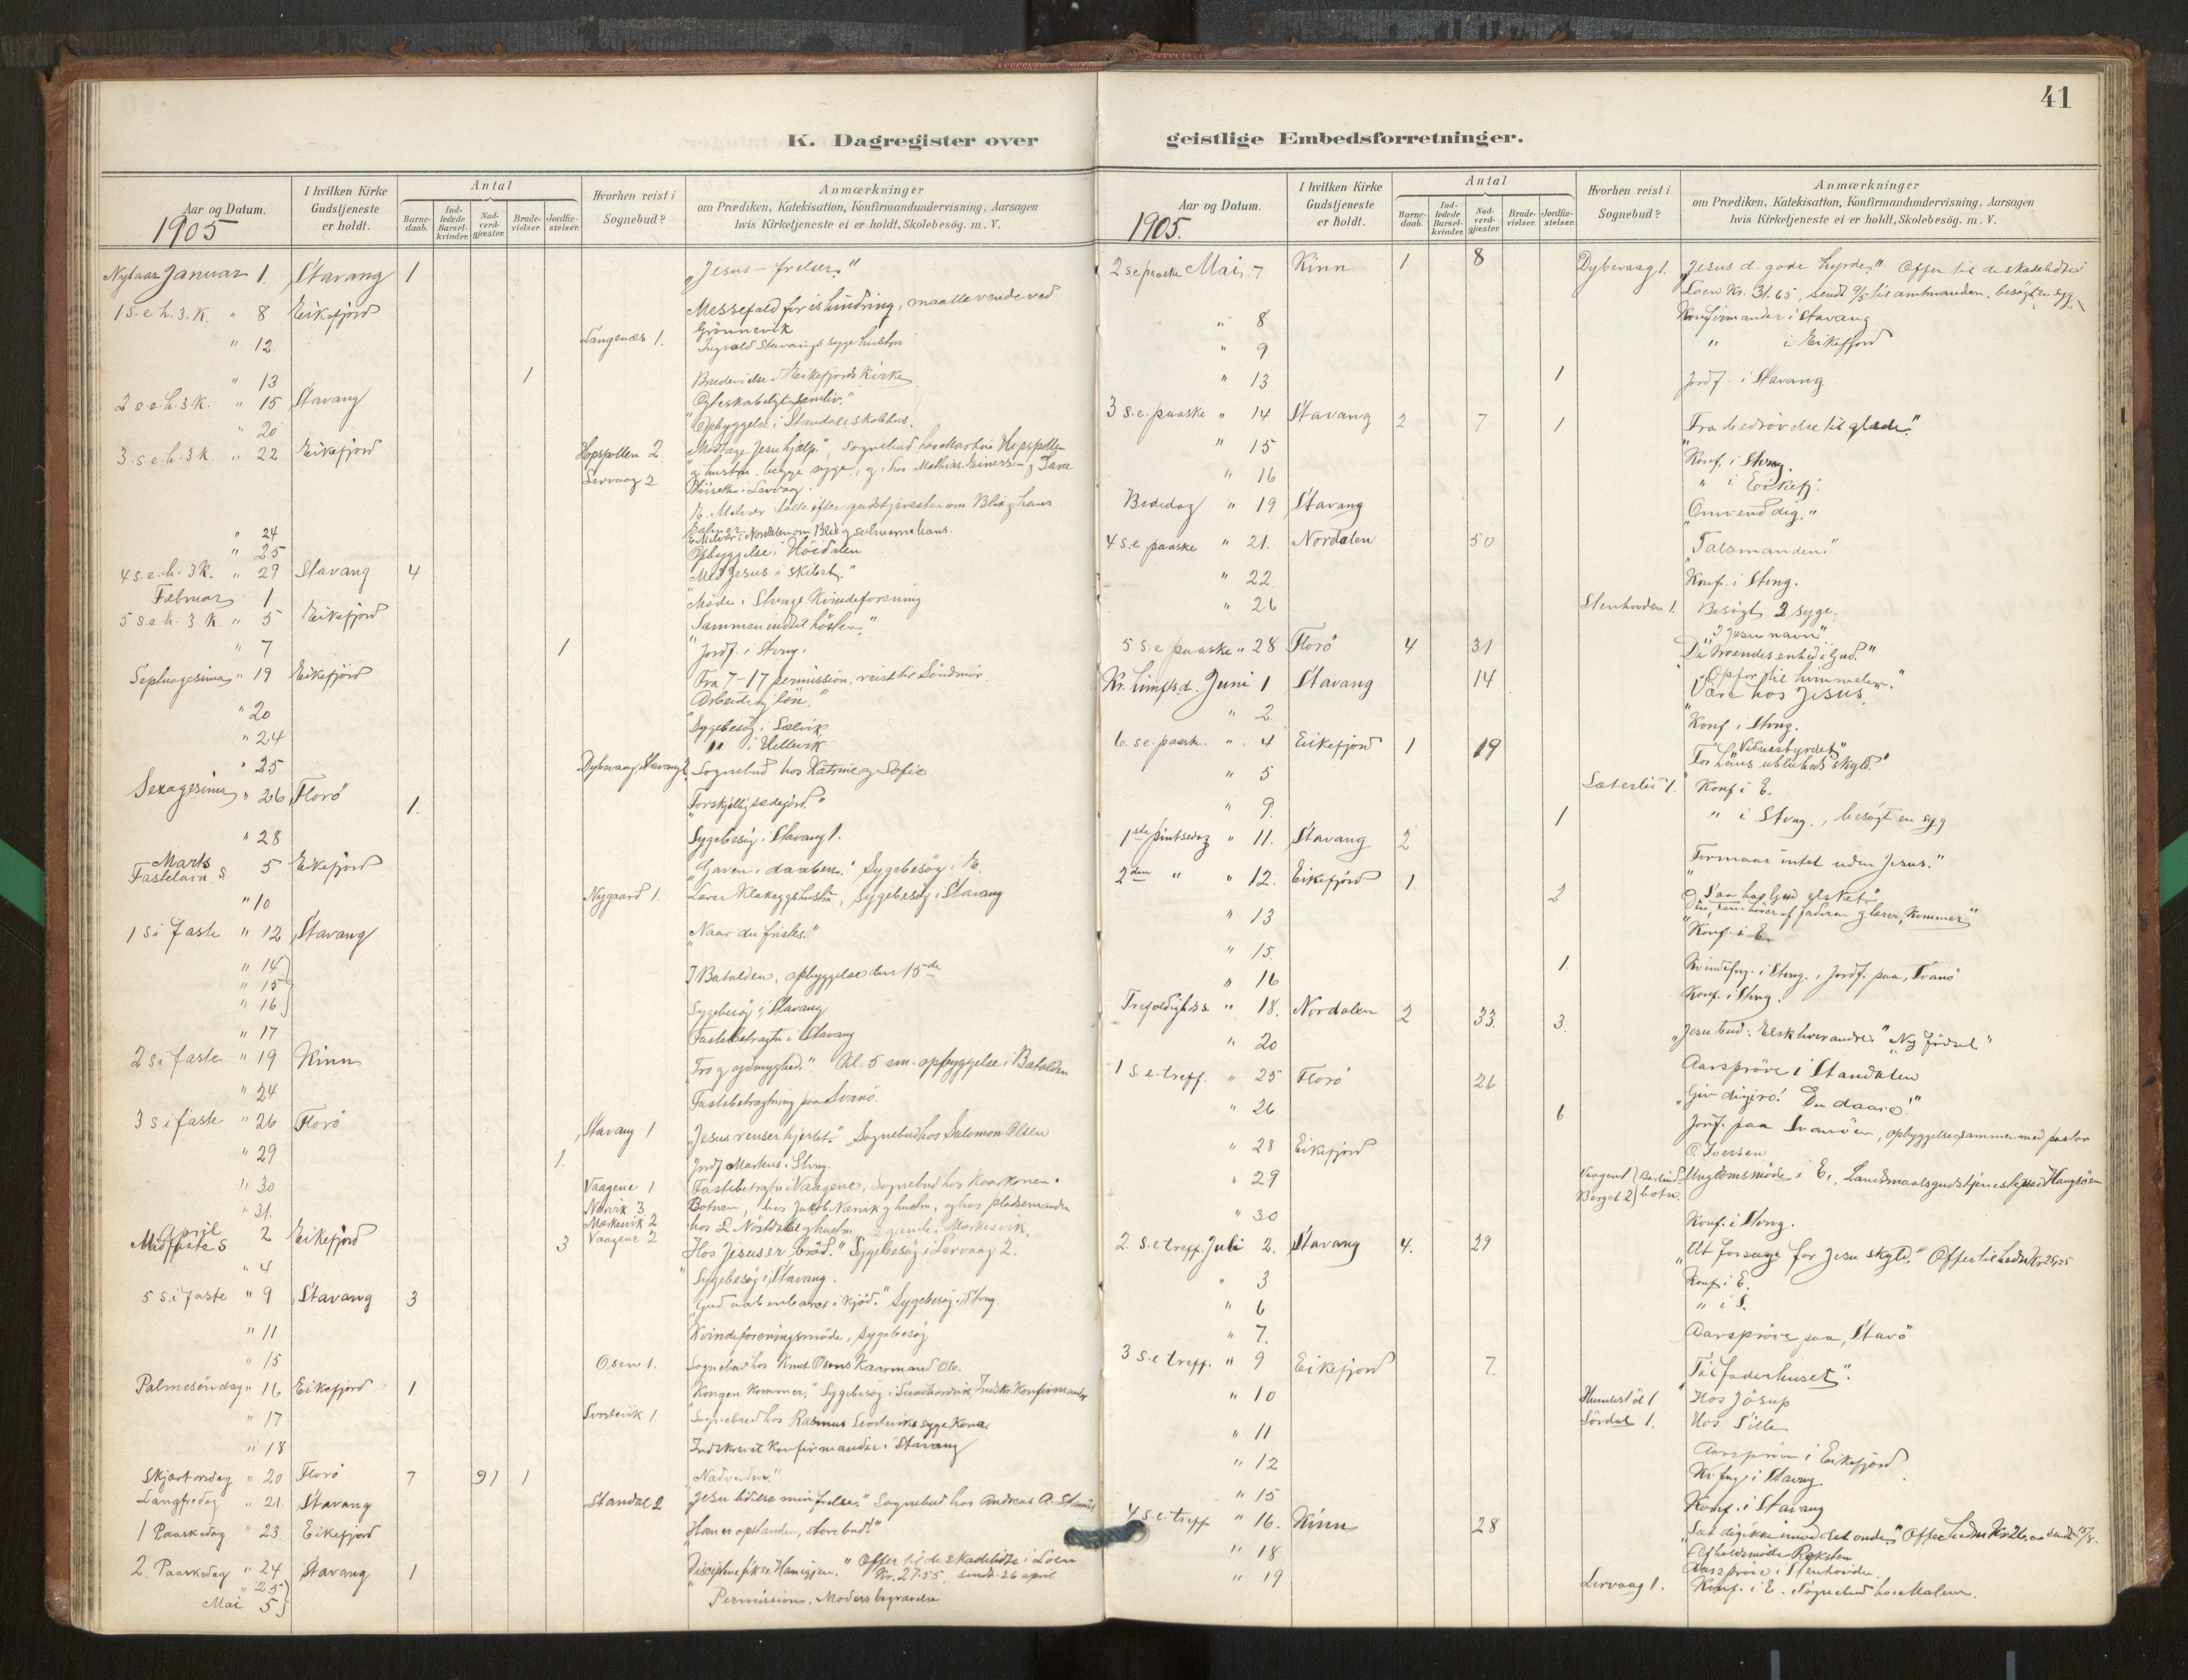 41
K. Dagregister over
geistlige Embedsforretninger.
Aar og Datum.
1905
I hvilken Kirke Gudstjeneste er holdt.
Antal
Barne-daab.
Ind-ledede Barsel-kvinder.
Nad-verd-gjæster.
Brude-vielser.
Jordfæ-stelser.
Hvorhen reist i Sognebud?
Anmærkninger
om Prædiken, Katekisation, Konfirmandundervisning, Aarsagen
hvis Kirketjeneste ei er holdt, Skolebesög. m. V.
Nytaar Januar 1. Stavang 1 "Jesus - frelser."
1 s. e. h. 3. K. " 8 Eikefjord Messefald for ishindring, maatte vende ved
Grönnevik
" 12. Langenæs 1. Stavangs syge hustru
" 13 1 Brudevielse i Eikefjords Kirke
2 s. e. h. 3 K. " 15 Stavang "Egteskabeligt samliv."
" 20 Opbyggelse i Standals skolehus.
3. s. e. h. 3 K. " 22 Eikefjord Hopspollen 2 "Modtage Jesu hjælp", Sognebud hos
Lervaag 2 hustru, begge syge, og hos Mathias
i Lervaag.
efter gudstjenesten om Blix og hans
salmer
" 24 i Nordalen om Blix og salmerne hans.
" 25 Opbyggelse i Höidalen
4 s. e. h. 3 K. " 29 Stavang 4 "Med Jesus i skibet."
Februar 1 Möde i Stvngs Kvindeforening
5 s. e. h. 3 K. " 5 Eikefjord "Sammen indtil hösten."
" 7 1 Jordf. i Stvng.
Septuagesima " 19 Eikefjord Fra 7-17 permission, reist til Söndmör.
"Arbeide og lön."
" 20 Sygebesög i Sælvik
" 24 " i Hellevik
" 25 Sognebud hos Katrine og Sofie
Sexagesima " 26 Florö 1. "Forskjellig sædejord."
" 28 Sygebesög i Stavang 1.
Marts
Fastelavn s 5 Eikefjord "Gaven i daaben." Sygebesög i E.
" 10 Nygaard 1. Lærer Klakeggs hustru, Sygebesög i Stavang
1 s i faste " 12 Stavang "Naar du fristes."
" 14
" 15 I Batalden, opbyggelse den 15de
" 16 Sygebesög i Stavang
" 17 Fastebetragtn. i Stavang
2 s i faste " 19 Kinn "Tro og ydmyghed." Kl. 5 em. opbyggelse i Batalden
" 24 Fastebetragtning paa Svanö.
3 s i faste " 26 Florö Stavang 1 "Jesus renser hjertet." Sognebud hos Salomon Olsen
" 29 1. Jordf. Markus i Stvng.
" 30 Vaagene 1 Fastebetragtn. i Vaagene, Sognebud hos
" 31. Nærvik 3 hos Jakob Nærvik og hustru, og hos pladsemanden
Markesvik 2 hos hustru, 2 gamle i Markesvik.
April 2 Eikefjord 3 Vaagene 2
Midfaste s "Hos Jesus er bröd." Sygebesög i Lervaag 2.
" 4 Sygebesög i Stavang.
5 s. i faste " 9 Stavang 3 "Gud aabenbares i kjöd." Sygebesög i Stvng
" 11 Kvindeforeningsmöde, Sygebesög
" 15 Osen 1. Sognebud hos Knut Osens Kaarmand Ole.
Palmesöndag " 16 Eikefjord 1 "Kongen kommer." Sygebesög i Indskr. Konfirmander
" 17 Svortevik 1. Sognebud hos Rasmus Svorteviks syge Kone
" 18 Indskrevet Konfirmander i Stavang
Skjærtorsdag " 20 Florö 7 91 1 "Nadverden."
Langfredag " 21. Stavang Standal 2 "Jesu lidelse min frelse." Sognebud hos Andreas A.
1 Paaskedag " 23. Eikefjord "Han er opstanden, store bud!"
2. Paaskedag " 24 Stavang 1 "Disciplene fik se Ham igjen." Offer til de skadelidte i Loen
" 25 Kr. 27.55. sendt 26 april
Mai 5 Permission. Moders begravelse
Aar og Datum.
1905.
I hvilken Kirke Gudstjeneste er holdt.
Antal
Barne-daab.
Ind-ledede Barsel-kvinder.
Nad-verd-gjæster.
Brude-vielser.
Jordfæ-stelser.
Hvorhen reist i Sognebud?
Anmærkninger
om Prædiken, Katekisation, Konfirmandundervisning, Aarsagen
hvis Kirketjeneste ei er holdt, Skolebesög. m. V.
2 s e paaske Mai 7 Kinn 1 8 Dybevaag 1. "Jesus d. gode hyrde." Offer til de skadelidte i
Loen Kr. 31.65, sendt 9/5 til amtmanden. besögt en syg
" 8 Konfirmander i Stavang
" 9 " i Eikefjord
" 13 1 Jordf. i Stavang
3 s. e. paaske " 14 Stavang 2 7 1 "Fra bedrövelse til glæde."
" 15 Konf. i Stvng.
" 16 " i Eikefj.
Bededag " 19 Stavang "Omvend dig."
4 s. e. paaske " 21. Nordalen 50 "Talsmanden."
" 22 Konf. i Stvng.
" 26 Stenhovden 1. Besögt 2 syge.
"I Jesu navn"
5 s. e paaske " 28 Florö 4 31 "De troendes enhed i Gud."
"Opfor til himmelen."
Kr. himf. d. Juni 1 Stavang 14 "Være hos Jesus."
" 2 Konf. i Stvng.
6. s e. paask. " 4 Eikefjord 1 19 "Vidnesbyrdet"
"For hans skyld."
" 5 Sæterlid 1. Konf i E.
" 9. 1 " i Stvng., besögt en syg
1ste pintsedag " 11. Stavang 2 "Formaar intet uden Jesus."
2den " " 12. Eikefjord 1. 2 "Saa har Gud elsket"
"Den, som hörer af faderen og lærer, kommer"
" 13 Konf. i E.
" 15. 1. Kvindefng. i Stvng., Jordf. paa Svanö
" 16 Konf. i Stvng.
Trefoldigheds s. " 18. Nordalen 2 33. 3. "Jesu bud: Elsk hverandre" "Ny födsel"
" 20 Aarspröve i Standalen
1 s. e. treff. " 25 Florö 26 "Giv dig i ro! Du daare!"
" 26 6 Jordf. paa Svanöen, opbyggelse sammen med pastor
O. Iversen
" 28 Eikefjord Ungdomsmöde i E., Landsmaalsgudstjeneste
" 29 botn.
" 30 Konf. i Stvng.
2. s. e treff. Juli 2. Stavang 4. 29 "At forsage for Jesu skyld." Offer til
" 3 Konf. i E.
" 6 " i S.
" 7. Aarspröve paa Stavö
3 s. e treff. " 9 Eikefjord 7. "Til faderhuset".
" 10 Humlestöl 1 Hos Jösup
Sördal 1. Hos Sille
" 11 Aarspröve i Eikefjord
" 12 Kv. fng. i Stavang
" 15 Konf. i Stavang
4 s. e. treff " 16. Kinn 28 "Lad dig ikke af det onde." Offer
" 18 Afholdsmöde Reksten
Aarspröve i Stenhovden.
" 19 Lervaag 1. Konf. i E. Sognebud hos